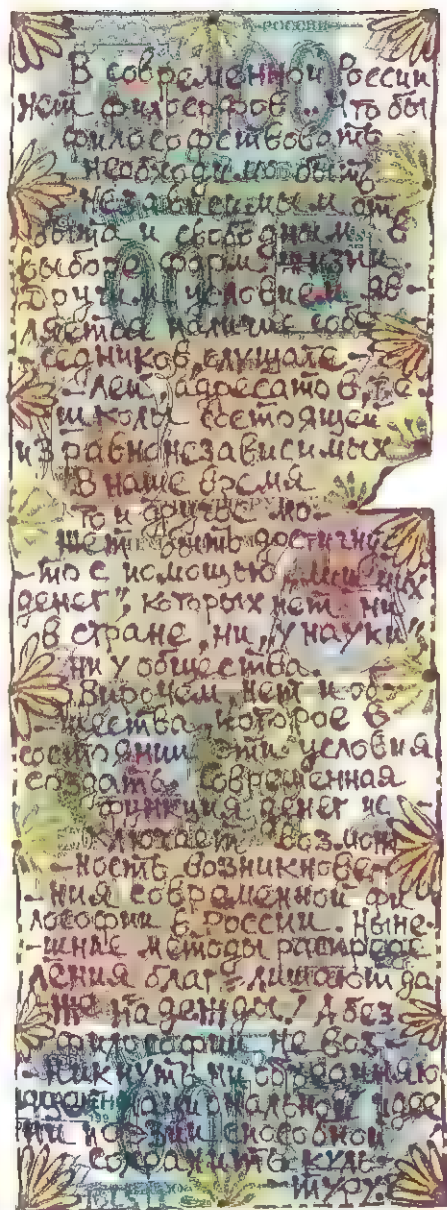 РОССИИ
В современной России
нет философов. Что бы
философствовать
необходимо быть
независимым от
быта и свободным в
выборе форм жизни
Другим условием яв-
ляется наличие собе-
седников, слушате-
лей, адресатов, т.е.
школы состоящей
из равнонезависимых
В наше время
то и другое мо-
жет быть достигну-
-то с помощью „лишних
денег", которых нет ни
в стране, ни „у науки"
ни у общества.
Впрочем, нет и об-
-щества, которое в
состоянии эти условия
создать. Современная
функция денег ис-
ключает возмож-
-ность возникнове-
-ния современной фи
лософии в России. Ныне-
-шние методы распреде
ления благ лишают да
же надежды! А без
философии не воз-
-никнуть ни
национальной идее
ни поэзии способной
сохранить куль-
-туру.